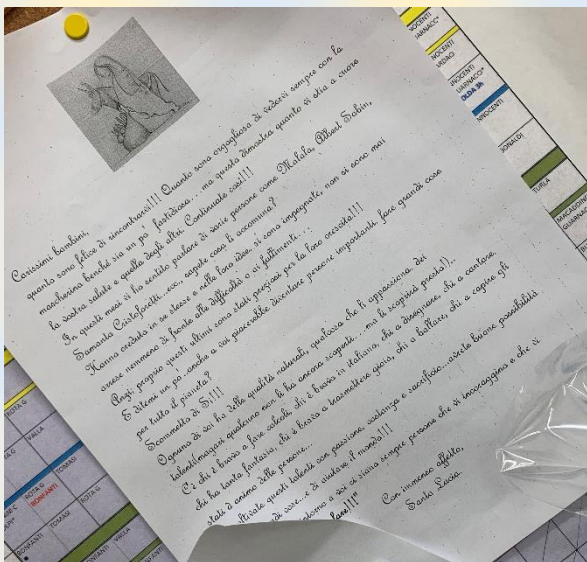 Carissimi bambini,
quanto sono felice di rincontrarvi!!! Quanto sono orgogliosa di vedervi sempre con la
mascherina benché sia un po' fastidiosa... ma questo dimostra quanto vi stia a cuore
la vostra salute e quella degli altri. Continuate così!!!
In questi mesi vi ho sentito parlare di varie persone come Malala, Albert Sabin,
Samanta Cristoforetti...ecc., sapete cosa li accomuna?
Hanno creduto in se stesse e nelle loro idee, si sono impegnate, non si sono mai
arrese nemmeno di fronte alle difficoltà o ai fallimenti...
Anzi, proprio questi ultimi sono stati preziosi per la loro crescita!!!
E ditemi un po', anche a voi piacerebbe diventare persone importanti, fare grandi cose
per tutto il pianeta?
Scommetto di Sì!!!
Ognuno di voi ha delle qualità naturali, qualcosa che li appassiona, dei
talenti(magari qualcuno non li ha ancora scoperti... ma li scoprirà presto!)..
C'è chi è bravo a fare calcoli, chi è bravo in italiano, chi a disegnare, chi a cantare,
chi ha tanta fantasia, chi è bravo a trasmettere gioia, chi a ballare, chi a capire gli
stati d'animo delle persone...
ltivate questi talenti con passione, costanza e sacrificio...avrete buone possibilità
di voi...e di aiutare il mondo!!!
intorno a voi ci siano sempre persone che vi incoraggino e che vi
fare!!!"
Con immenso affetto,
Santa Lucia
INNOCENTI
GUARNACC*
INNOCENTI
INNOCENTI
GUARNACC*
OLDA 3h
INNOCENTI
BONALDI
TURLA
MACAGDINO
GUARNAC
ROTA G
VAILLA
ROTA G
BONFANTI
TOMASI
TOMASI
ROTA G
BONFANTI
VAILLA